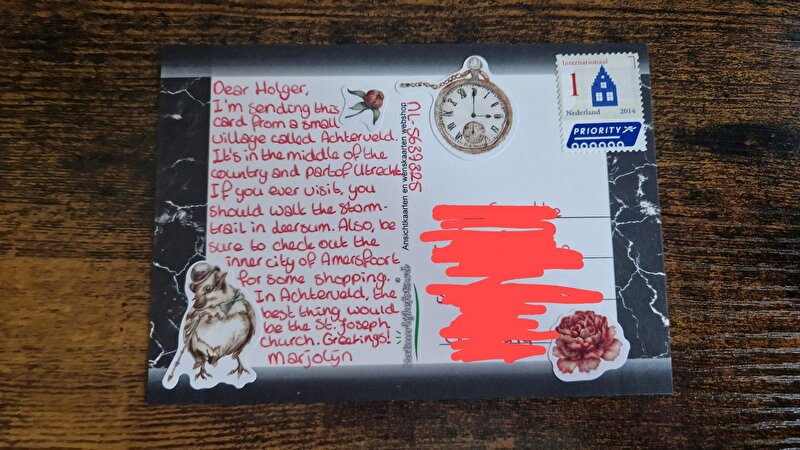 Dear Holger,
I'm sending this
card from a small
village called Achterveld.
It's in the middle of the
country and part of Utrecht.
If you ever visit, you
should walk the storm-
trail in deersum. Also, be
sure to check out the
inner city of Amersfoort
for some shopping.
In Achterveld, the
best thing would
be the St. Joseph
church. Greetings!
Marjolijn
NL-5689825
Ansichtkaarten en wenskaarten webshop
Internationaal
1
Nederland 2014
PRIORITY